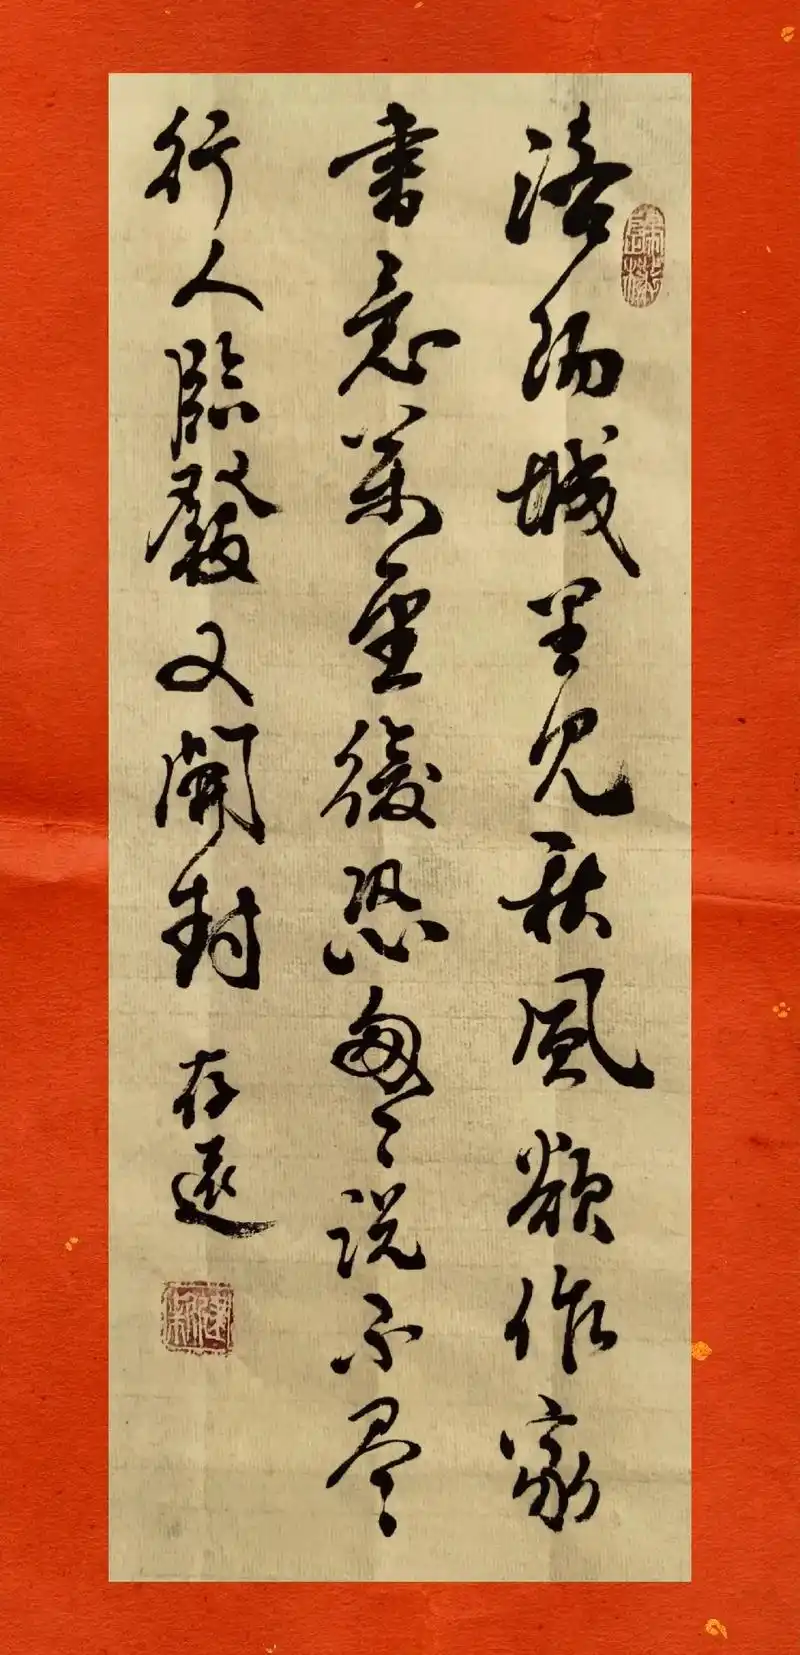 洛陽城里見秋風欲作家
書意萬重復恐匆々說不尽
行人臨發又開封 存遠